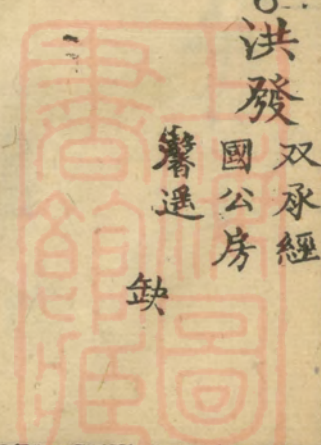 洪發
双承經
國公房
馨遥
缺